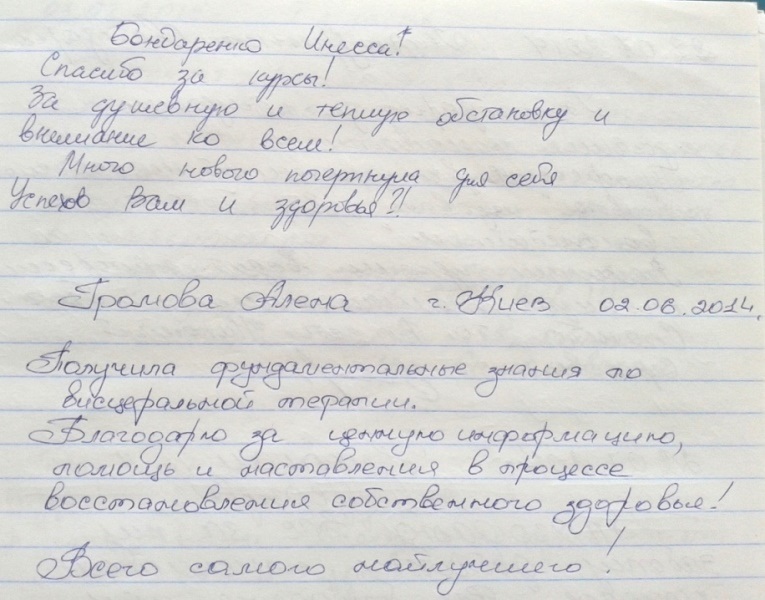 Бондаренко Инесса!
Спасибо за курсы!
За душевную и теплую обстановку и
внимание ко всем!
Много нового почерпнула для себя
Успехов Вам и здоровья!!
Громова Алена г. Киев 02.06.2014.
Получила фундаментальные знания по
висцеральной терапии.
Благодарю за ценную информацию,
помощь и наставления в процессе
восстановления собственного здоровья!
Всего самого найлучшего!